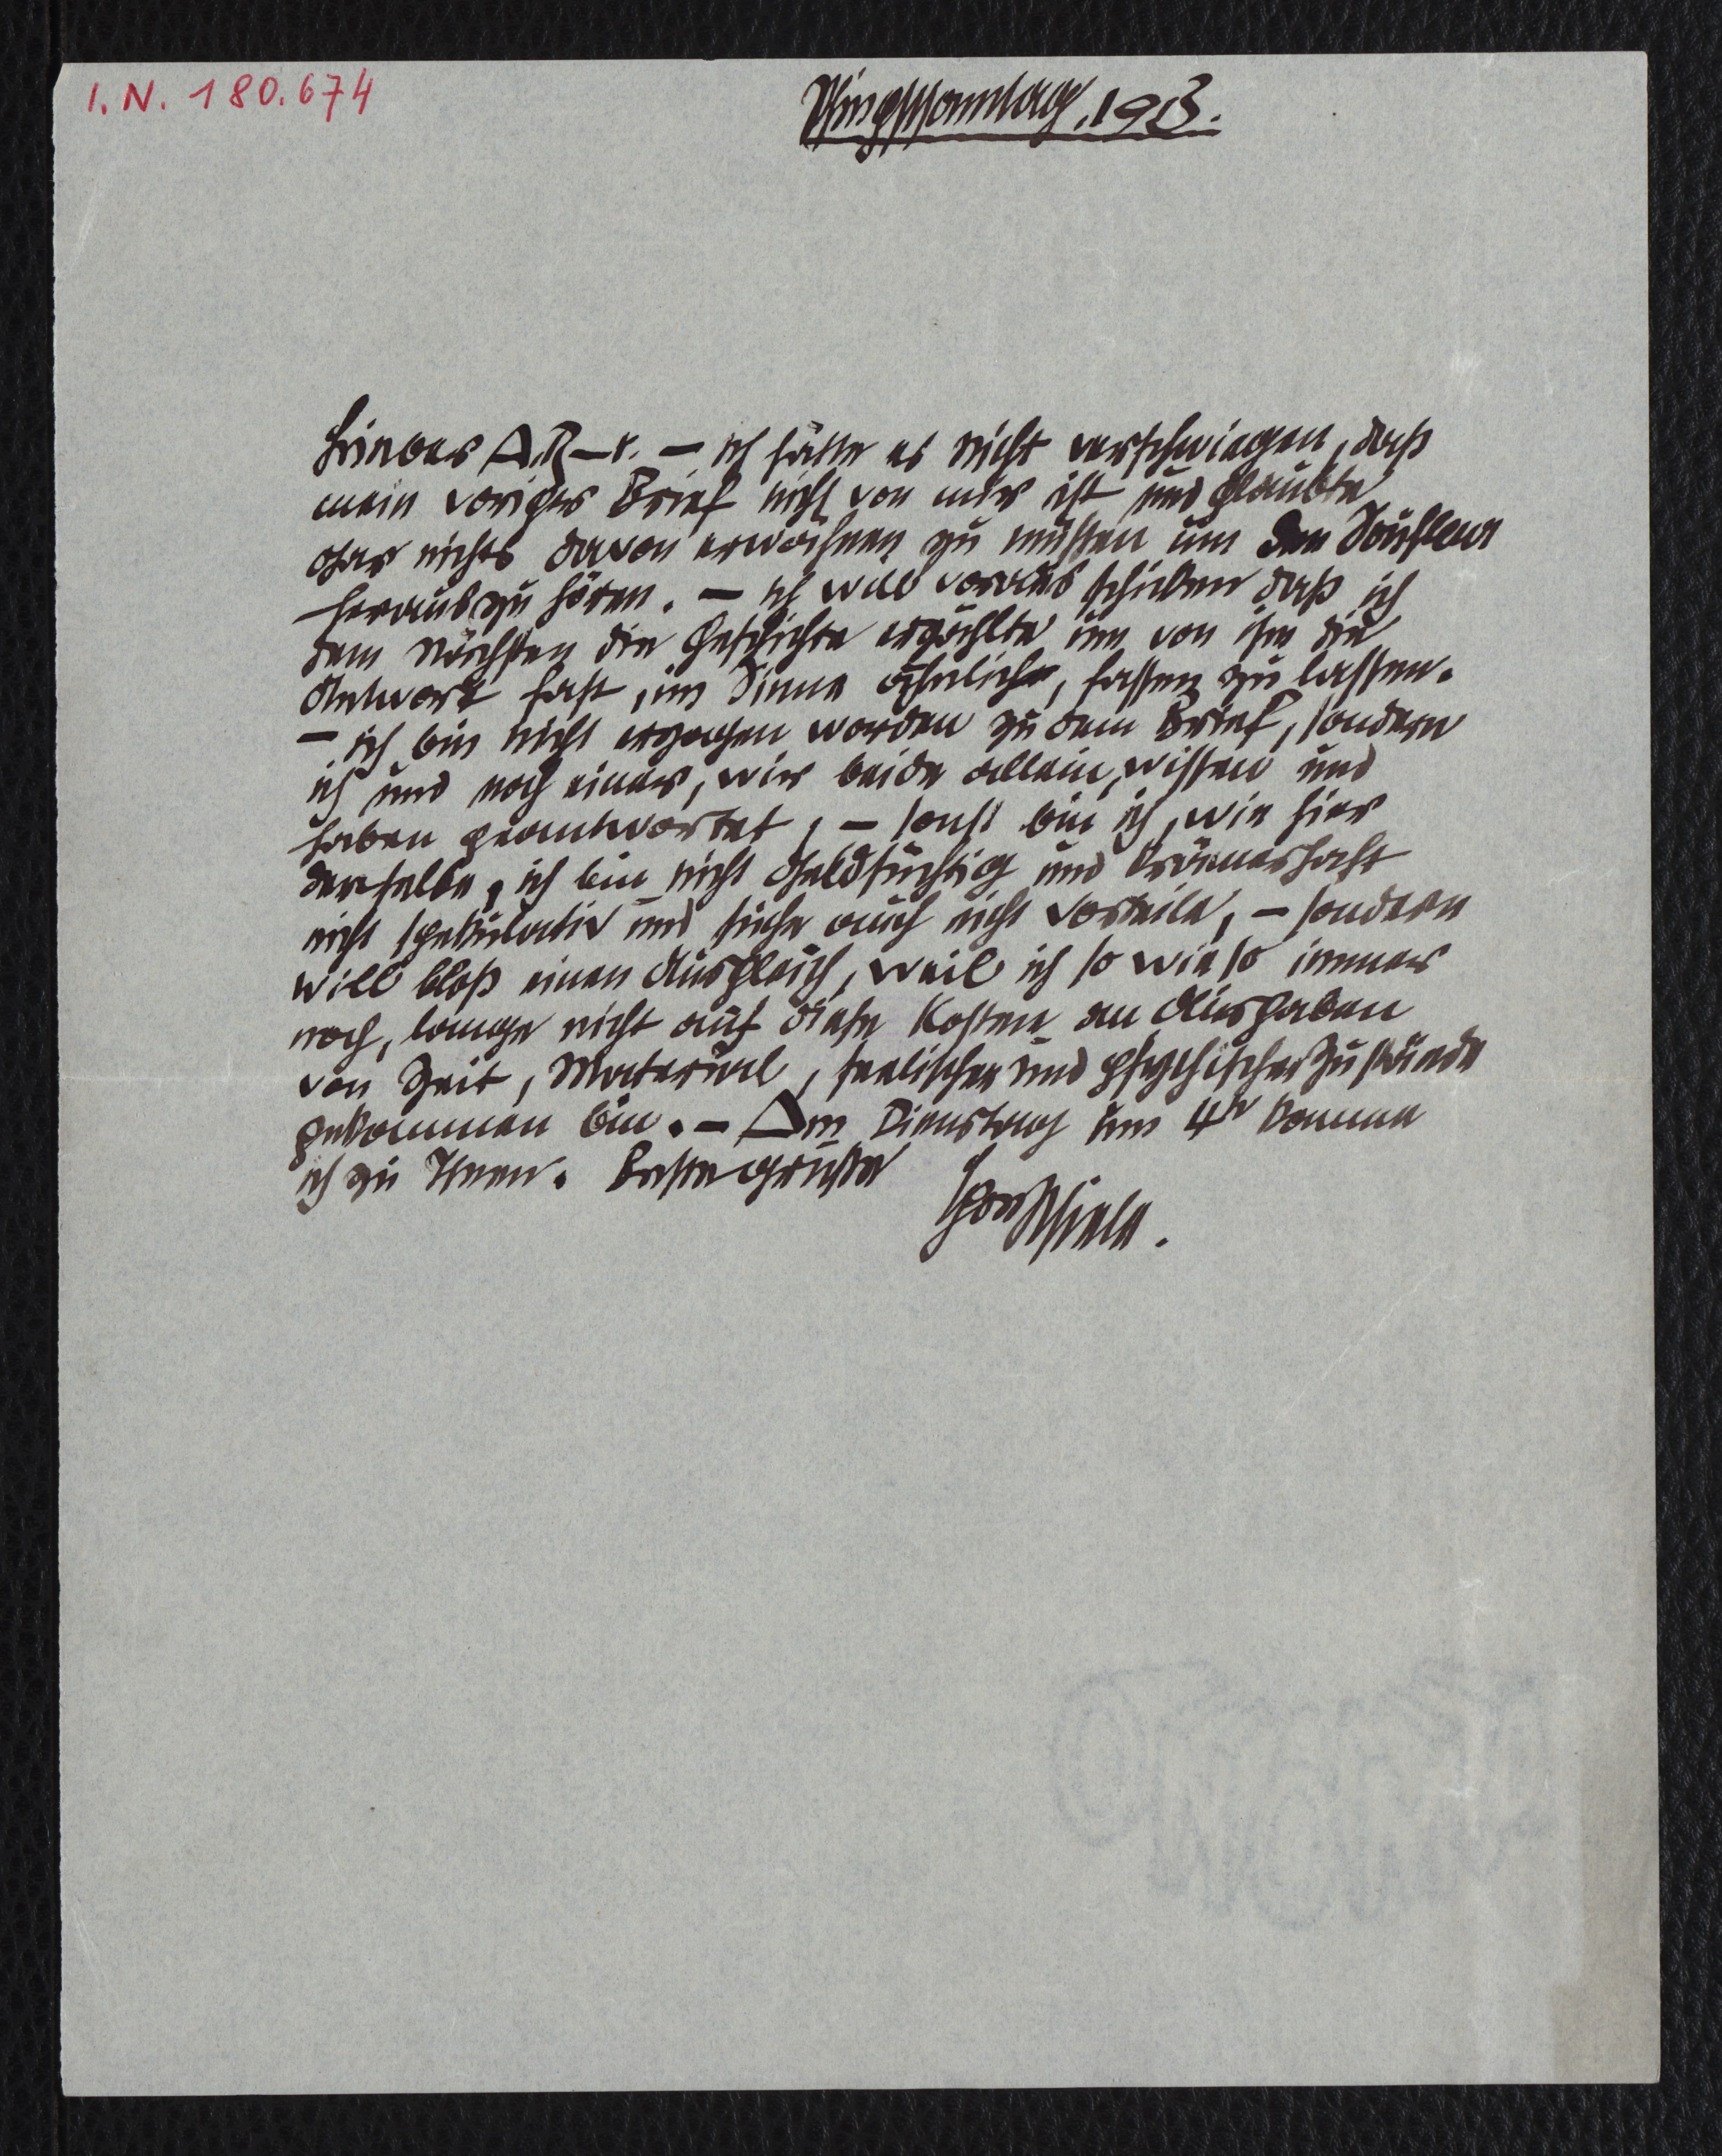 I.N. 180.674
Pfingstsonntag, 1913.
Lieber A.R–r. – ich hätte es nicht verschwiegen, daß
mein voriger Brief nicht von mir ist und glaubte
gar nichts davon erwähnen zu müssen um den Soufleur
herauszuhören. – ich will voraus schicken daß ich
dem Nächsten die Geschichte erzählte um von ihm die
Antwort fast, im Sinne ähnliche, fassen zu lassen.
– ich bin nicht erzogen worden zu dem Brief, sondern
ich und noch einer, wir beide allein, wissen und
haben geantwortet, – sonst bin ich, wie hier
derselbe, ich bin nicht Geldsüchtig und krämerhaft
nicht spekulativ und suche auch nicht Vorteile, – sondern
will bloß einen Ausgleich, weil ich so wie so immer
noch, lange nicht auf diese Kosten an Ausgaben
von Zeit, Material, seelischer und psychischer Zustände
gekommen bin. – Am Dienstag um 4h komme
ich zu Ihnen. Beste Grüße
Egon Schiele.